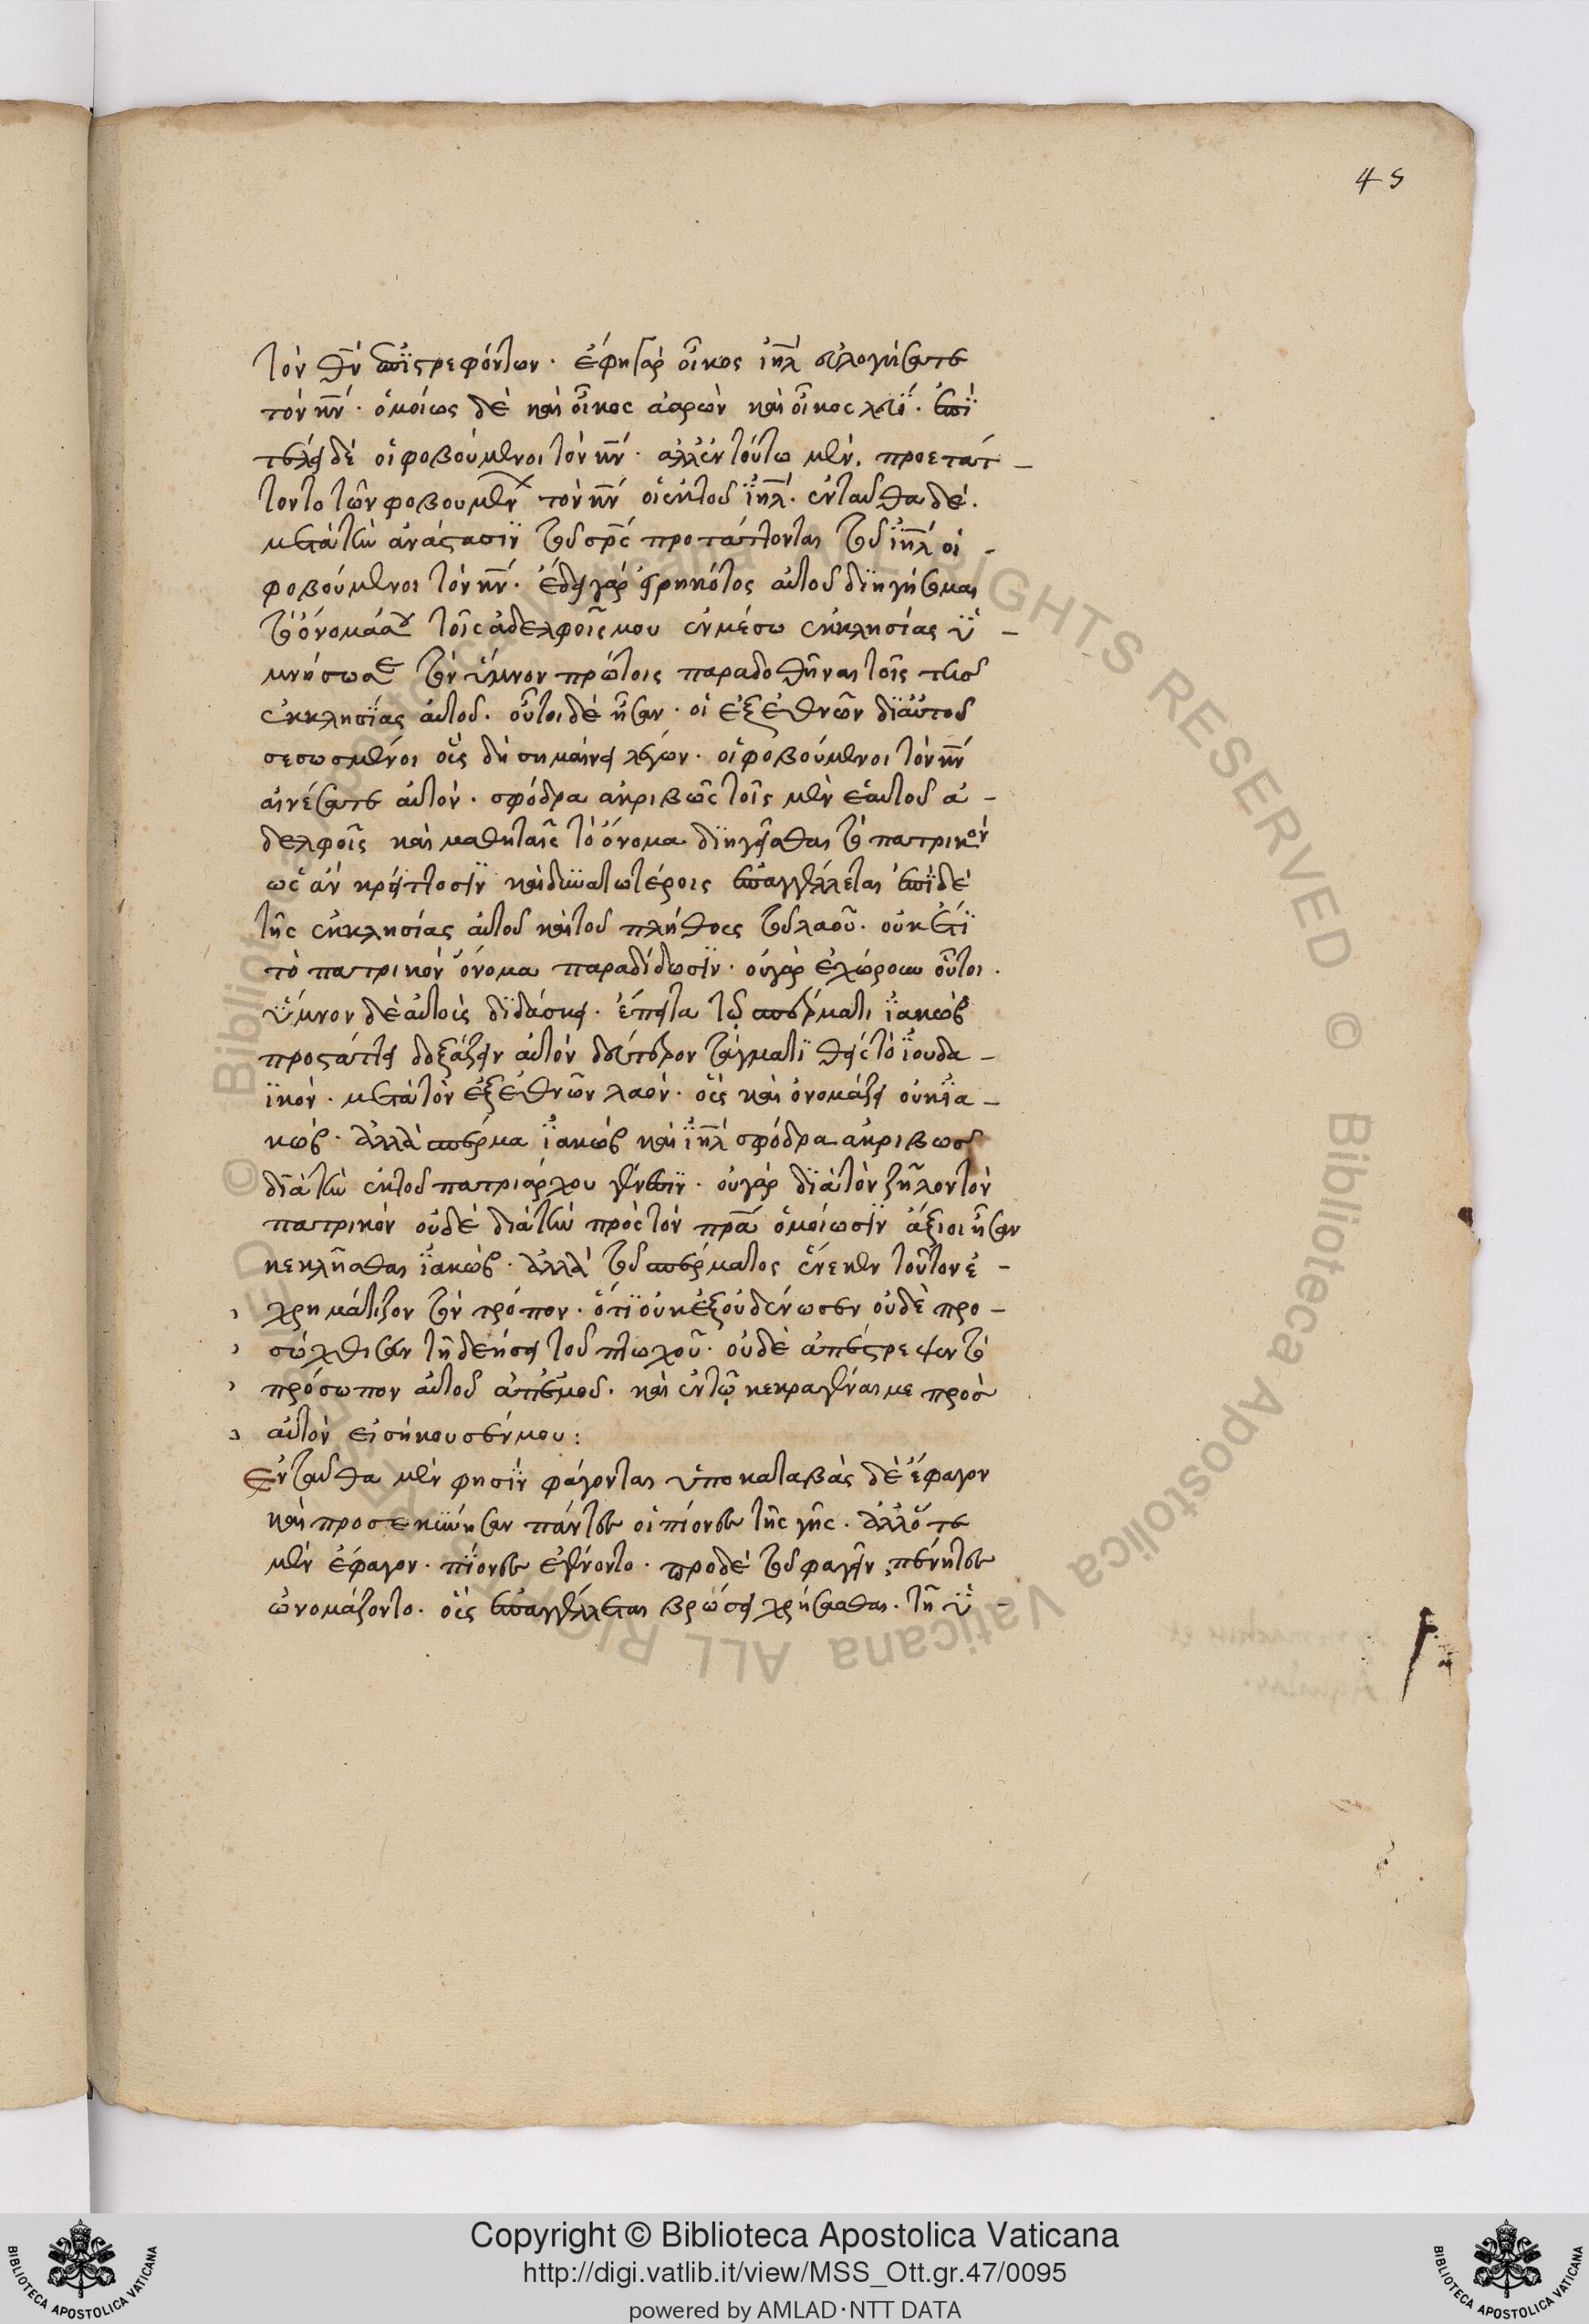 45
τὸν θν ἐπϊστρεφόντων · ἔφη γὰρ οἶκος ιηλ εὐλογήσατε
τὸν κν · ὁμοίως δὲ καὶ οἶκος ἀαρὼν καὶ οἶκος λευΐ · ἐπῒ
τέλει δὲ οἱ φοβούμενοι τὸν κν · ἀλλ' ἐν τούτω μὲν. προετάτ –
τοντο τῶν φοβουμένων τὸν κν οἱ ἐκ τοῦ ϊηλ · ἐνταῦθα δὲ.
μετὰ τὴν ἀνάστασιϊν τοῦ σρς προτάττονται τοῦ ϊηλ οἱ –
φοβούμενοι τὸν κν · ἔδει γὰρ εἰρηκότος αὐτοῦ διηγήσομαι
τὸ ὄνομά σου τοῖς ἀδελφοῖς μου ἐν μέσω ἐκκλησίας ὑ –
μνήσω σε τὸν ὕμνον πρώτοις παραδοθῆναι τοῖς τῆς
ἐκκλησίας αὐτοῦ · οὗτοι δὲ ἦσαν · οἱ ἐξ ἐθνῶν δϊ αὐτοῦ
σεσωσμένοι οἷς δὴ σημαίνει λέγων · οἱ φοβούμενοι τὸν κν
αἰνέσατε αὐτόν · σφόδρα ἀκριβῶς τοῖς μὲν ἑαυτοῦ ἀ –
δελφοῖς καὶ μαθηταῖς τὸ ὄνομα διηγεῖσθαι τὸ πατρικὸν
ὡς ἂν κρείττοσιν καὶ δυνατωτέροις ἐπαγγέλλεται ἐπῒ δὲ
τῆς ἐκκλησίας αὐτοῦ καὶ τοῦ πλήθους τοῦ λαοῦ · οὐκέτϊ
τὸ πατρικὸν ὄνομα παραδίδωσιν · οὐ γὰρ ἐχώρουν οὗτοι.
ὕμνον δὲ αὐτοῖς δϊδάσκει · ἔπειτα τῷ σπέρματι ϊακώβ
προστάττει δοξάζειν αὐτὸν δεύτερον τάγματϊ θεὶς τὸ ϊουδα –
ϊκόν · μετὰ τὸν ἐξ ἐθνῶν λαόν · οἷς καὶ ὀνομάζει οὐκ ϊα –
κώβ · ἀλλὰ σπέρμα ϊακώβ καὶ ϊηλ σφόδρα ἀκριβῶς
δϊὰ τὴν ἐκ τοῦ πατριάρχου γένεσιν · οὐ γὰρ δϊὰ τὸν ζῆλον τὸν
πατρικὸν οὐδὲ διὰ τὴν πρὸς τὸν πρα ὁμοίωσιν ἄξιοι ἦσαν
κεκλῆσθαι ϊακώβ · ἀλλὰ τοῦ σπέρματος ἕνεκεν τοῦτον ἐ –
χρημάτιζον τὸν τρόπον · ὅτϊ οὐκ ἐξουδένωσεν οὐδὲ προ –
σώχθισαν τῇ δεήσει τοῦ πτωχοῦ · οὐδὲ ἀπέστρεψεν τὸ
πρόσωπον αὐτοῦ ἀπ' ἐμοῦ · καὶ ἐν τῷ κεκραγέναι με πρὸσ
αὐτὸν εἰσήκουσέν μου :
Ἐνταῦθα μὲν φησὶν φάγονται ὑποκαταβὰς δὲ ἔφαγον
καὶ προσεκύνησαν πάντες οἱ πίονες τῆς γῆς · ἀλλ' ὅτε
μὲν ἔφαγον · πίονες ἐγένοντο · προ δὲ τοῦ φαγεῖν, πένητες
ὠνομάζοντο · οἷς ἐπαγγέλλεται βρώσει χρήσασθαι · τῇ ὑ –